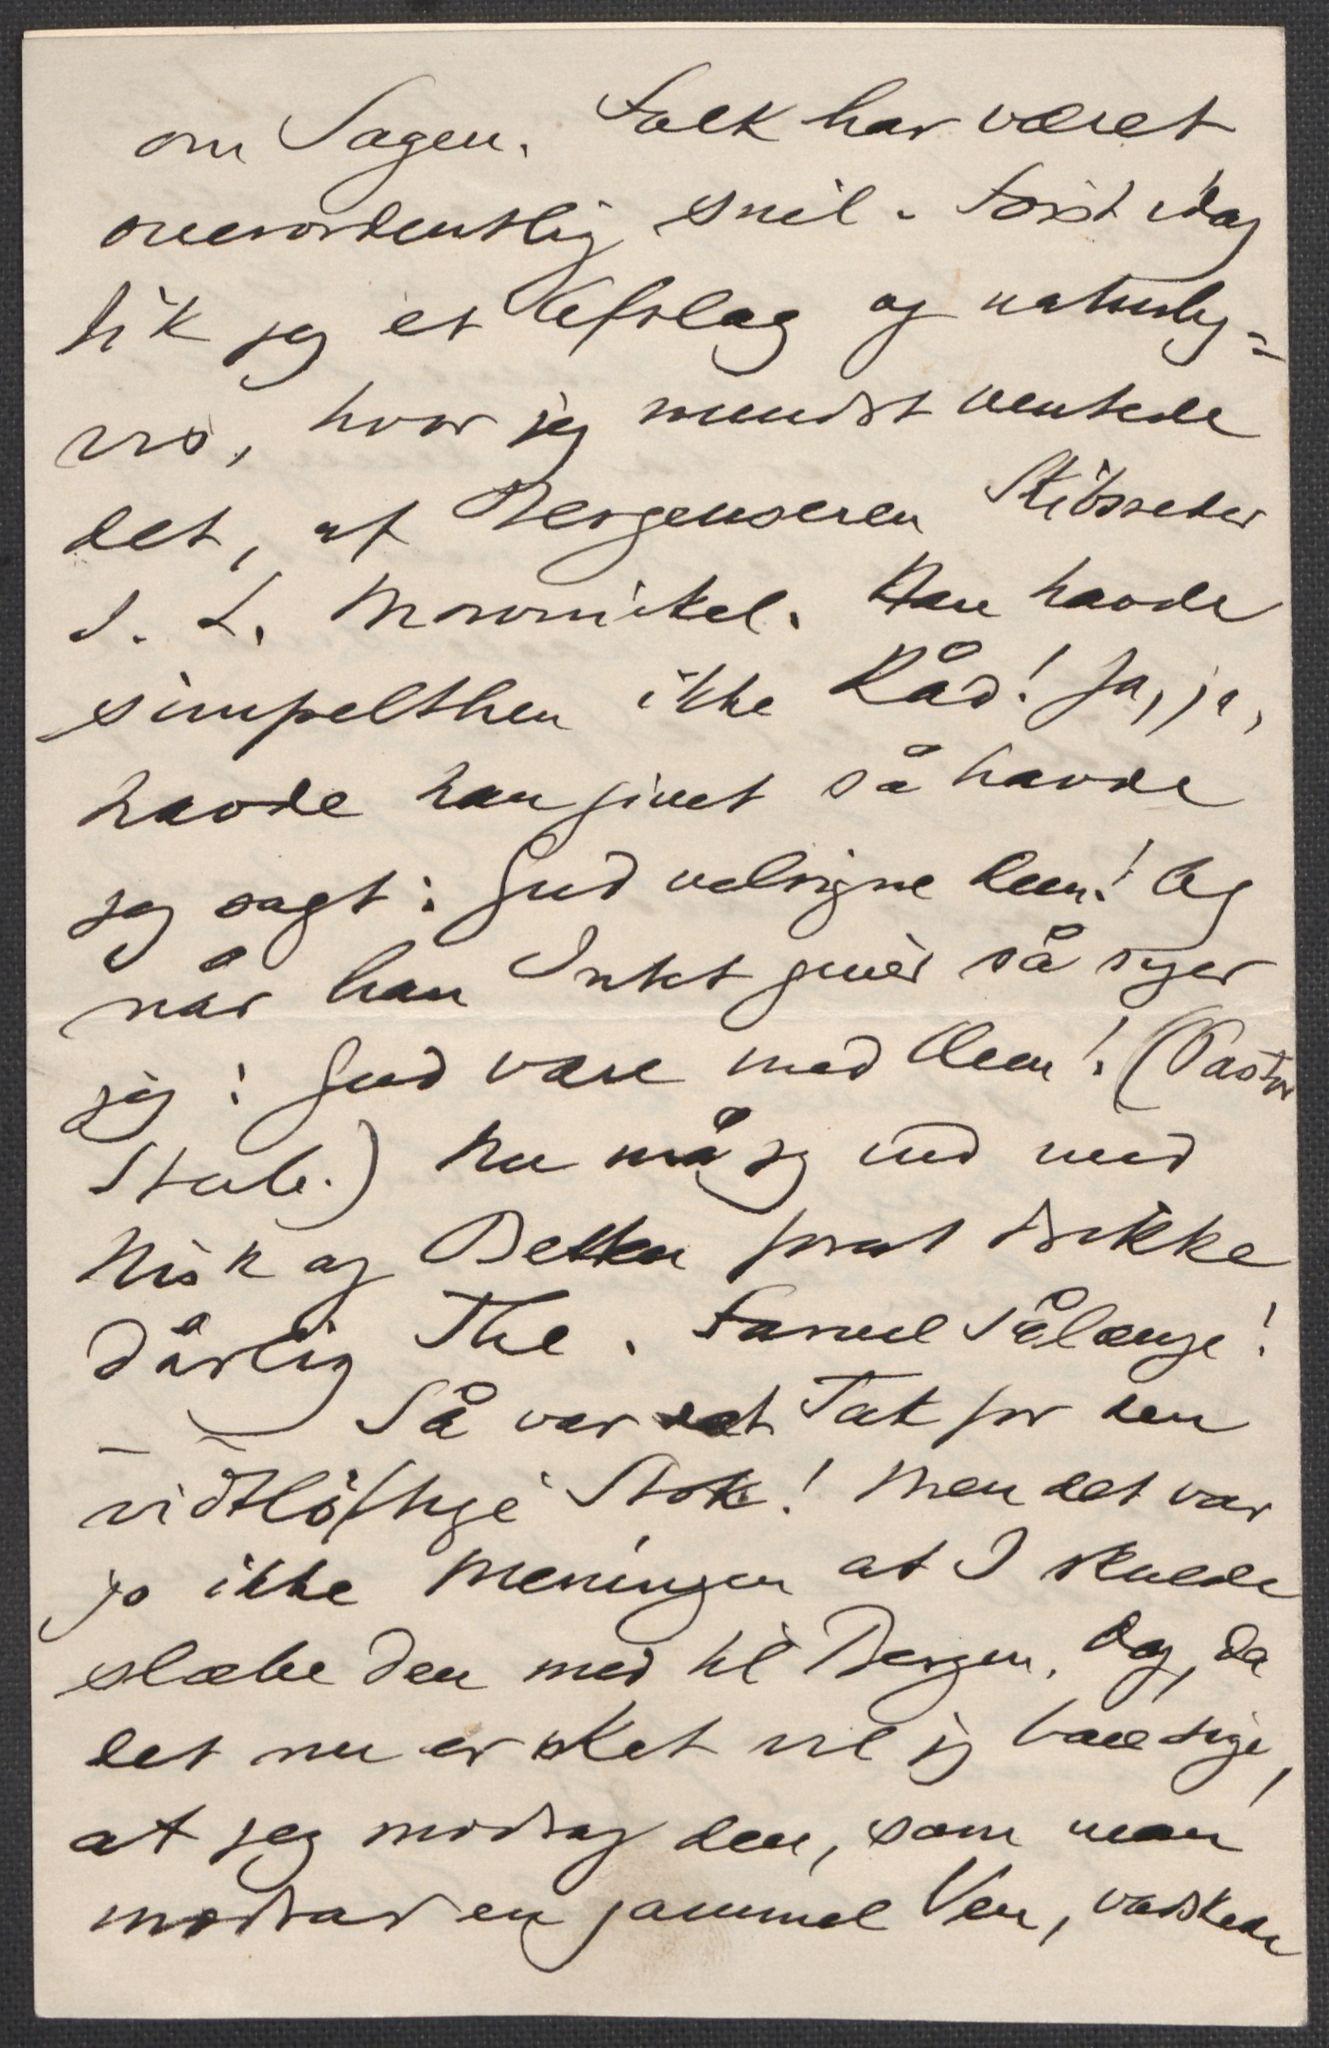 om Sagen. Folk har været
overordentlig snil. Først idag
fik jeg et Afslag og naturlig=
vis, hvor jeg mindst ventede
det, af Bergenseren Skibsreder
J. L. Mowinkel. Han havde
simpelthen ikke Råd! Ja, ja,
havde han givet så havde
jeg sagt: Gud velsigne Dem! Og
når han Intet givèr så siger
jeg: Gud være med Dem! (Pastor
Stub.) Nu må jeg ned med
Nisk og Betten forat drikke
dårlig The. Farvel Sålænge!
Så var det Tak for den
vidtlöftige Stok! Men det var
jo ikke Meningen at I skulde
slæbe den med til Bergen. Og, da
det nu er sket vil jeg bare sige,
at jeg modtog den, som man
modtar en gammel Ven, vadskede